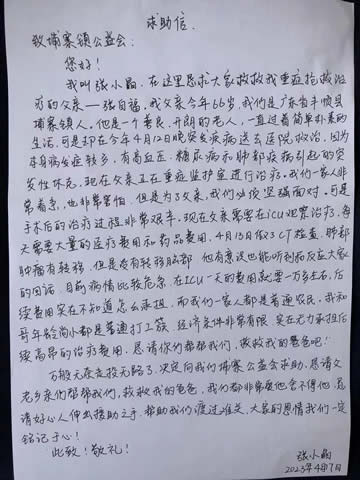 求助信
致埔寨镇公益会:
您好!
我叫张小晶,在这里恳求大家救救我重症抢救治
疗的父亲——张自福,我父亲今年66岁,我们是广东省丰顺县
埔寨镇人。他是一个善良、开朗的老人,一直过着简单朴素的
生活,可是却在今年4月12日晚突发疾病送去医院救治,因为
本身病发症较多,有高血压、糖尿病和肺部疾病引起的突
发性休克,现在父亲正在重症监护室进行治疗。我们一家人非
常着急,也非常害怕,但是为了父亲,我们必须坚强面对。可是
手术后的治疗过程非常艰辛,现在父亲需要在icu观察治疗,每
天需要大量的医疗费用和药品费用,4月13日做了CT检查,肺部
肿瘤有转移,但是没有转移脑部,他有意识也能听到和反应大家
的回话,目前病情比较危急,在ICU一天的费用就要一万多左右,后
续费用实在不知道怎么承担,而我们一家人都是普通农民,我和
哥年龄尚小都是普通打工族,经济条件非常有限,实在无力承担后
续高昂的治疗费用,恳请你们帮帮我们,救救我的爸爸吧!
万般无奈走投无路了,决定向我们埔寨镇公益会求助,恳请父
老乡亲们帮帮我们,救救我的爸爸,我们都非常爱他舍不得他,恳
请好心人伸出援助之手,帮助我们渡过难关,大家的恩情我们一定
铭记于心!
此致!敬礼!
张小晶
2023年4月17日